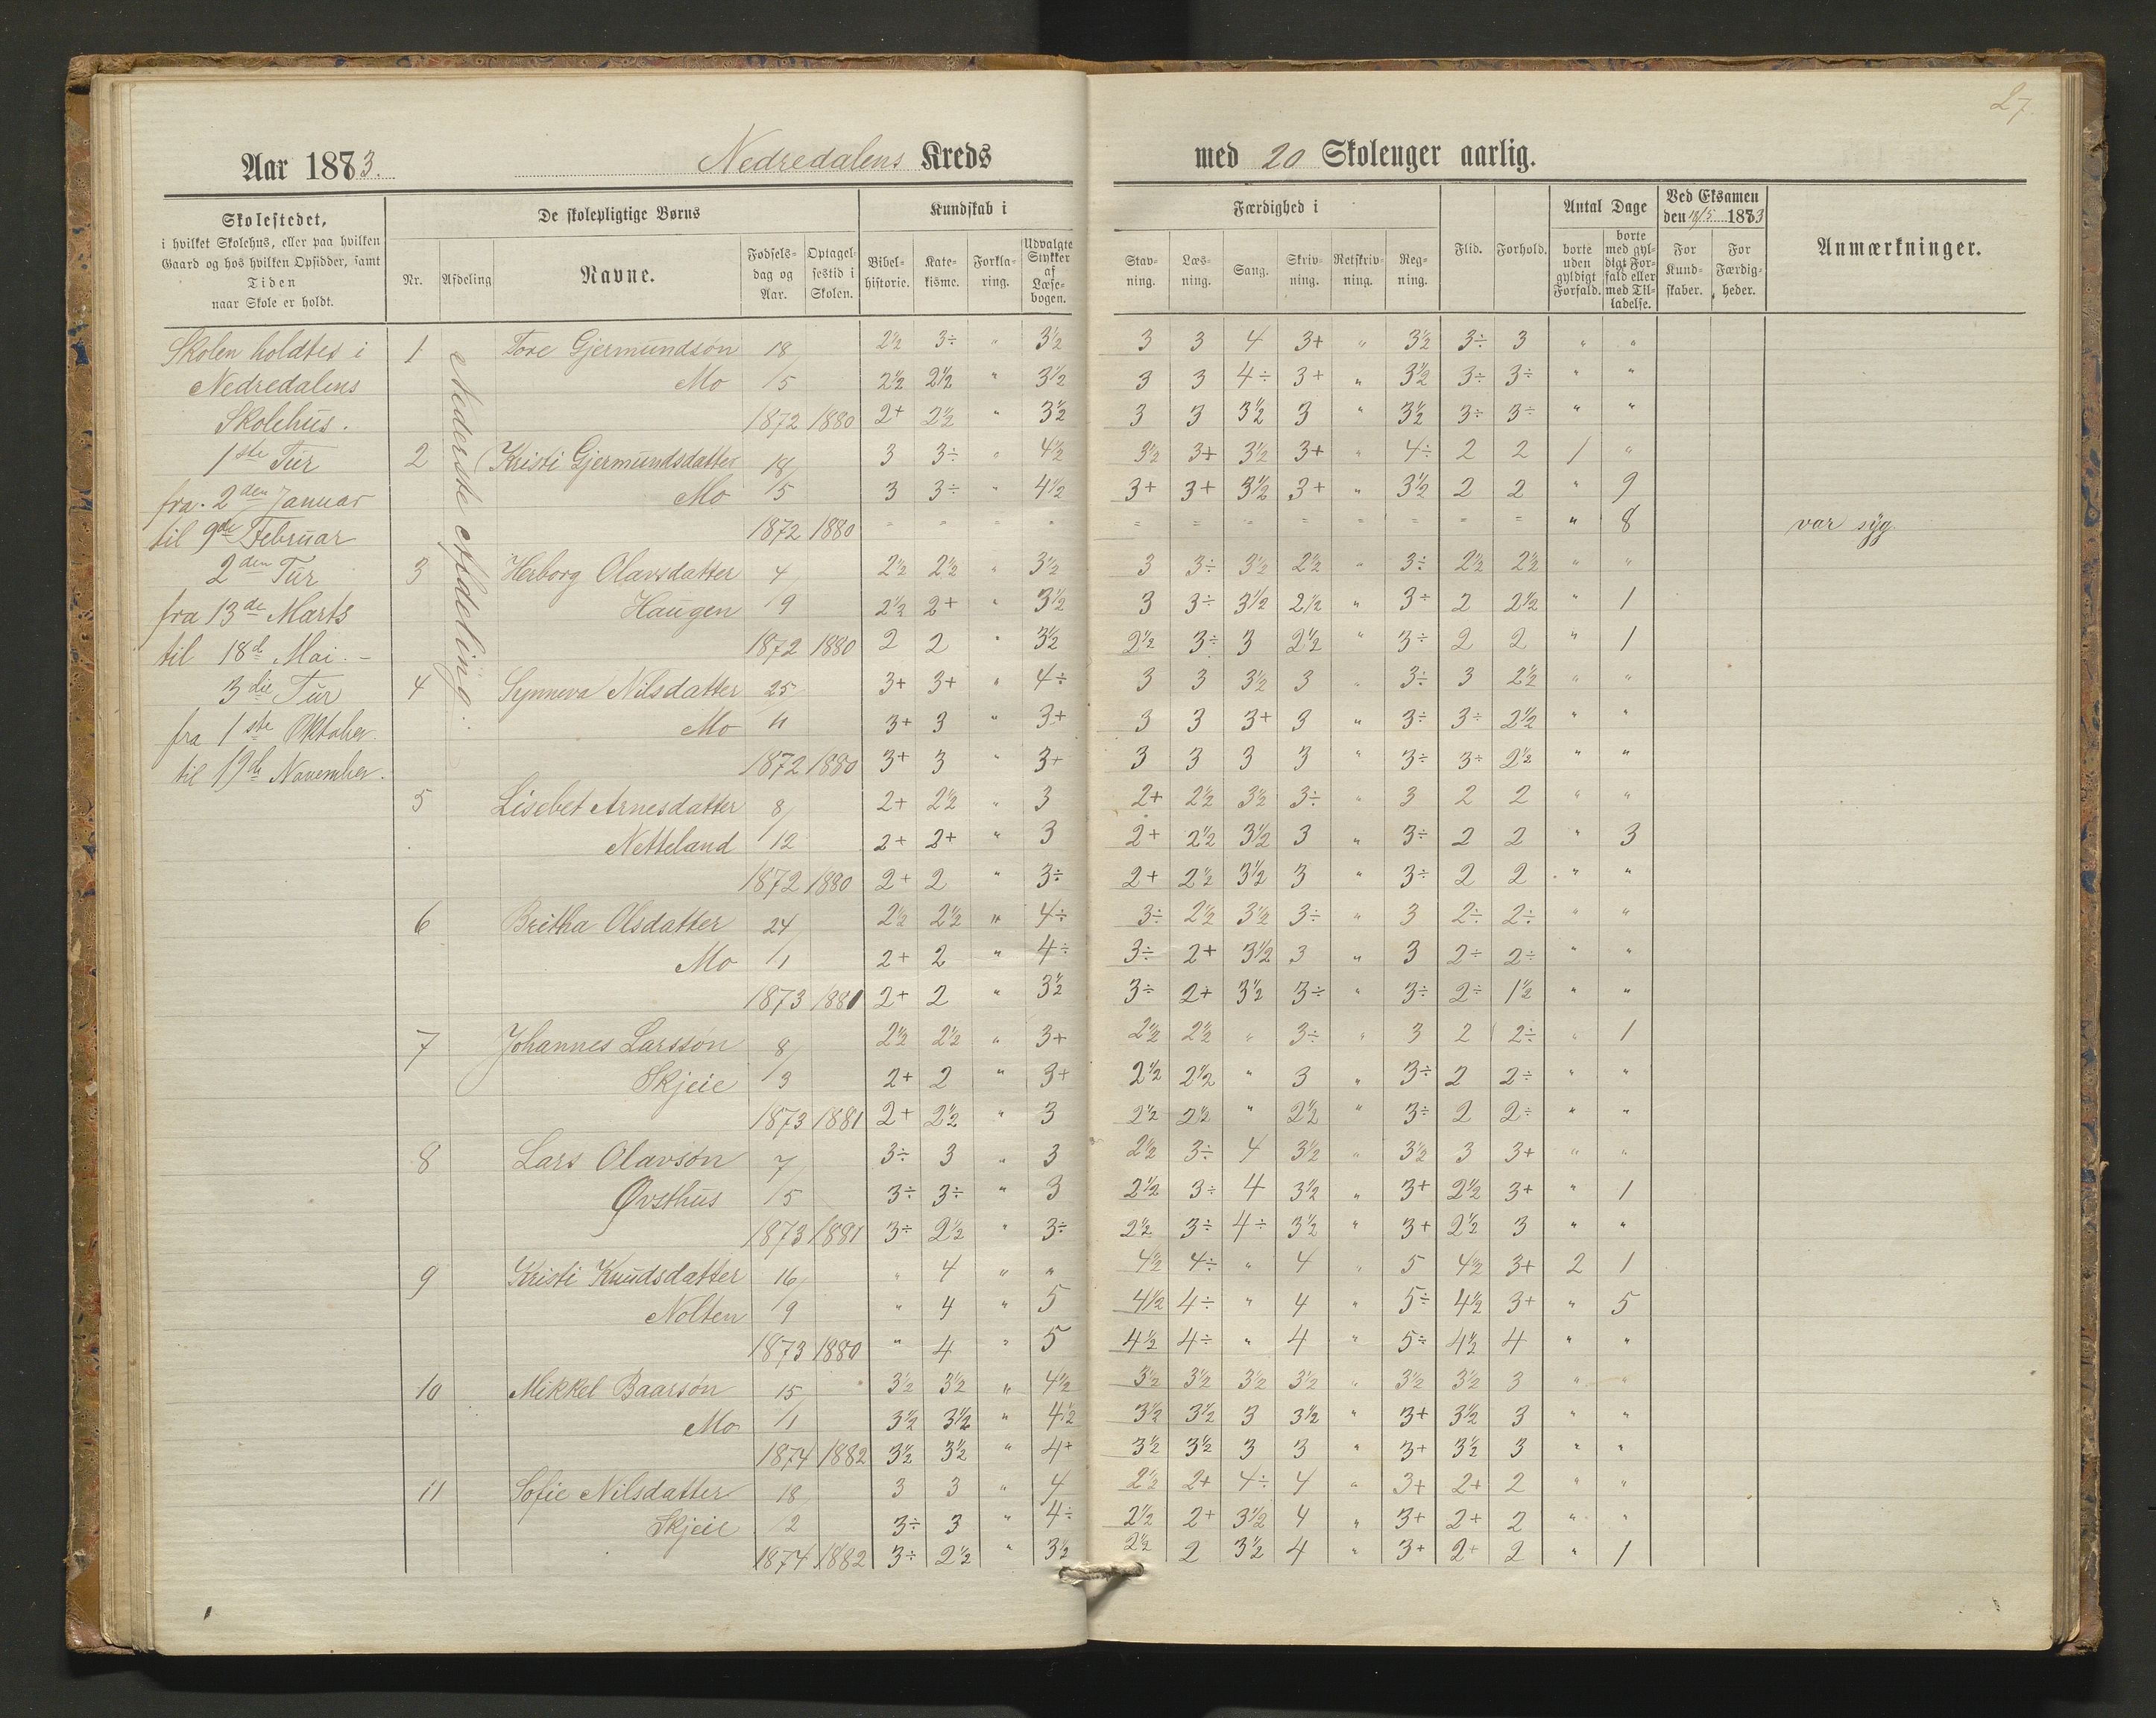 27.
Aar 1883. Nedredalens Kreds med 20 Skoleuger aarlig.
Skolestedet,
i hvilket Skolehus, eller paa hvilken
Gaard og hos hvilken Opsidder, samt
Tiden
naar Skole er holdt.
De skolepligtige Børns
Nr. Afdeling Navne. Fødsels-dag og Aar. Optagel-sestid i Skolen.
Kundskab i
Bibel-historie. Kate-kisme. Forkla-ring. Udvalgte Stykker af Læse-bogen.
Færdighed i
Stav-ning. Læs-ning. Sang. Skriv-ning. Retskriv-ning. Reg-ning.
Flid. Forhold.
Antal Dage
borte uden gyldigt Forfald. borte med gyl-digt For-fald eller med Til-ladelse.
Ved Eksamen den 18/5 1883
For Kund-skaber. For Færdig-heder.
Anmærkninger.
Skolen holdtes i
Nedredalens
Skolehus.
1ste Tur
fra 2den Januar
til 9de Februar
2den Tur
fra 13de Marts
til 18d Mai. -
3die Tur
fra 1ste Oktober.
til 19de November.
Nederste Afdeling.
1 Tore Gjermundsøn 18/ 2½ 3÷ " 3½ 3 3 4 3+ " 3½ 3÷ 3 " "
Mo /5 2½ 2½ " 3½ 3 3 4÷ 3+ " 3½ 3÷ 3÷ " "
1872 1880 2+ 2½ " 3½ 3 3 3½ 3 " 3½ 3÷ 3÷ " "
2 Kristi Gjermundsdatter 18/ 3 3÷ " 4½ 3½ 3+ 3½ 3+ " 4÷ 2 2 1 "
Mo /5 3 3÷ " 4½ 3+ 3+ 3½ 3+ " 3½ 2 2 " 9
1872 1880 " " " " " " " " " " " " " 8 var syg
3 Herborg Olavsdatter 4/ 2½ 2½ " 3½ 3 3÷ 3½ 2½ " 3÷ 2½ 2½ " "
Haugen /9 2½ 2+ " 3½ 3 3÷ 3½ 2½ " 3÷ 2 2½ " 1
1872 1880 2 2 " 3½ 2½ 3÷ 3 2½ " 3÷ 2 2 " 1
4 Synneva Nilsdatter 25/ 3+ 3+ " 4÷ 3 3 3½ 3 " 3÷ 3 2½ " "
Mo 3+ 3 " 3+ 3 3 3+ 3 " 3÷ 3÷ 2½ " "
1872 1880 3+ 3 " 3+ 3 3 3 3 " 3÷ 3÷ 2½ " "
5 Lisebet Arnesdatter 8/ 2+ 2½ " 3 2+ 2½ 3½ 3÷ " 3 2 2 " "
Netteland /12 2+ 2+ " 3 2+ 2½ 3½ 3 " 3÷ 2 2 " 3
1872 1880 2+ 2 " 3÷ 2+ 2½ 3½ 3 " 3÷ 2 2 " "
6 Britha Olsdatter 24/ 2½ 2½ " 4÷ 3÷ 2½ 3½ 3÷ " 3 2÷ 2÷ " "
Mo /1 2+ 2 " 4÷ 3÷ 2+ 3½ 3 " 3 2÷ 2÷ " "
1873 1881 2+ 2 " 3½ 3÷ 2+ 3½ 3÷ " 3÷ 2÷ 1½ " "
7 Johannes Larssøn 8/ 2½ 2½ " 3+ 2½ 2½ " 3÷ " 3 2 2÷ " 1
Skjeie /3 2+ 2 " 3+ 2½ 2½ " 3 " 3÷ 2 2÷ " "
1873 1881 2+ 2½ " 3 2½ 2½ " 2½ " 3÷ 2 2÷ " "
8 Lars Olavsøn 7/ 3÷ 3 " 3 2½ 3÷ 4 3½ " 3½ 3 3+ " "
Øvsthus /5 3÷ 3÷ " 3 2½ 3÷ 4 3½ " 3+ 2½ 3+ " 1
1873 1881 3÷ 2½ " 3÷ 2½ 3÷ 4÷ 3½ " 3+ 2½ 3 " "
9 Kristi Knudsdatter 16/ " 4 " " 4½ 4÷ " 4 " 5 4½ 3+ 2 1
Nolten /9 " 4 " 5 4½ 4÷ " 4 " 5÷ 4½ 3+ " 5
1873 1880 " 4 " 5 4½ 4÷ " 4 " 5÷ 4½ 4 " "
10 Mikkel Baarsøn 15/ 3½ 3½ " 4½ 3½ 3½ 3½ 3½ " 3½ 3½ 3 " "
Mo /1 3½ 3½ " 4½ 3½ 3½ 3 3½ " 3+ 3½ 3 " "
1874 1882 3½ 3½ " 4+ 3½ 3½ 3 3 " 3+ 3½ 3 " "
11 Sofie Nilsdatter 18/ 3 3 " 4 2½ 2+ 4÷ 4 " 3+ 2+ 2 " "
Skjeie /2 3÷ 3 " 4÷ 2½ 2+ 3½ 4 " 3+ 2+ 2 " "
1874 1882 3÷ 2½ " 3½ 2½ 2 3½ 4 " 3+ 2+ 2 " 1